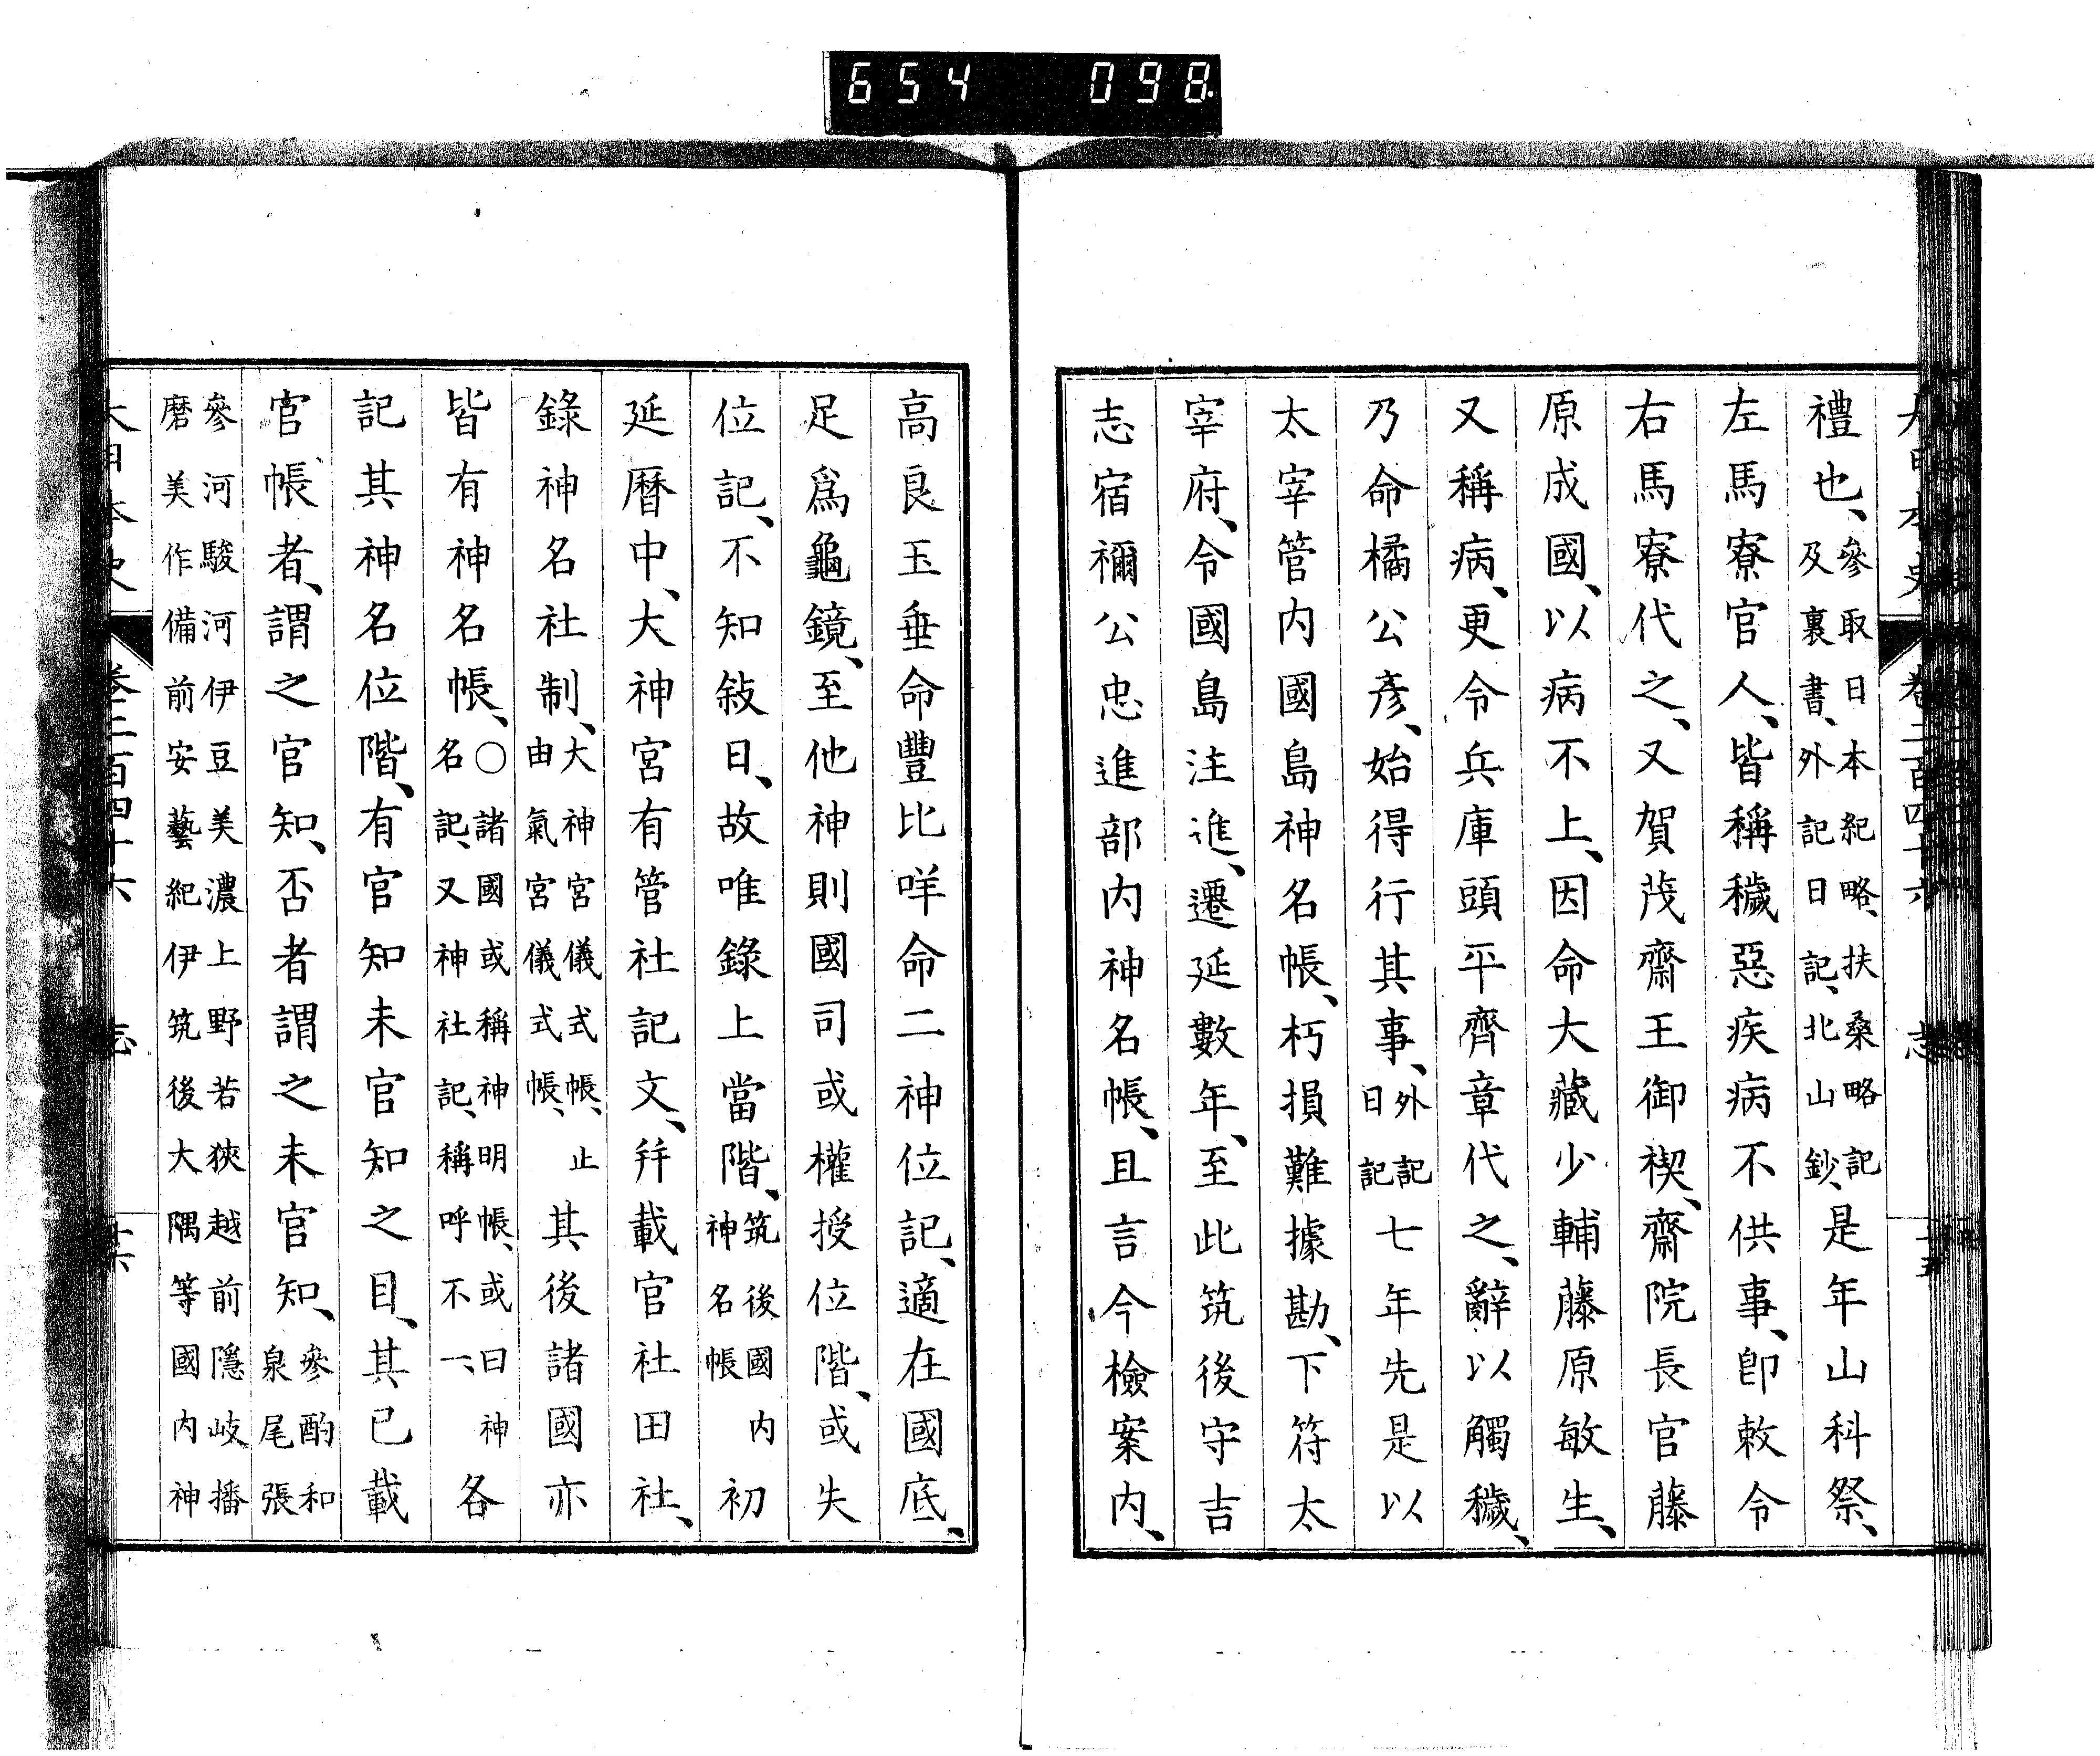 654 098
禮也、參取日本紀略、扶桑略記及裏書、外記日記、北山鈔、是年山科祭、
左馬寮官人、皆稱穢惡疾病不供事、卽敕令
右馬寮代之、又賀茂齋王御禊、齋院長官藤
原成國、以病不上、因命大藏少輔藤原敏生、
又稱病、更令兵庫頭平齊章代之、辭以觸穢、
乃命橘公彥、始得行其事、外記日記七年先是以
太宰管内國島神名帳、朽損難據勘、下符太
宰府、令國島注進、遷延數年、至此筑後守吉
志宿禰公忠進部内神名帳、且言今檢案内、
高良玉垂命豐比咩命二神位記、適在國底、
足爲龜鏡、至他神則國司或權授位階、或失
位記、不知敍日、故唯錄上當階、筑後國内神名帳初
延曆中、大神宮有管社記文、幷載官社田社、
錄神名社制、大神宮儀式帳、止由氣宮儀式帳、其後諸國亦
皆有神名帳、○諸國或稱神明帳、或曰神名記、又神社記、稱呼不一、各
記其神名位階、有官知未官知之目、其已載
官帳者、謂之官知、否者謂之未官知、參酌和泉尾張
參河駿河伊豆美濃上野若狹越前隱岐播磨美作備前安藝紀伊筑後大隅等國内神
大日本史 卷二百四十六 志 十六